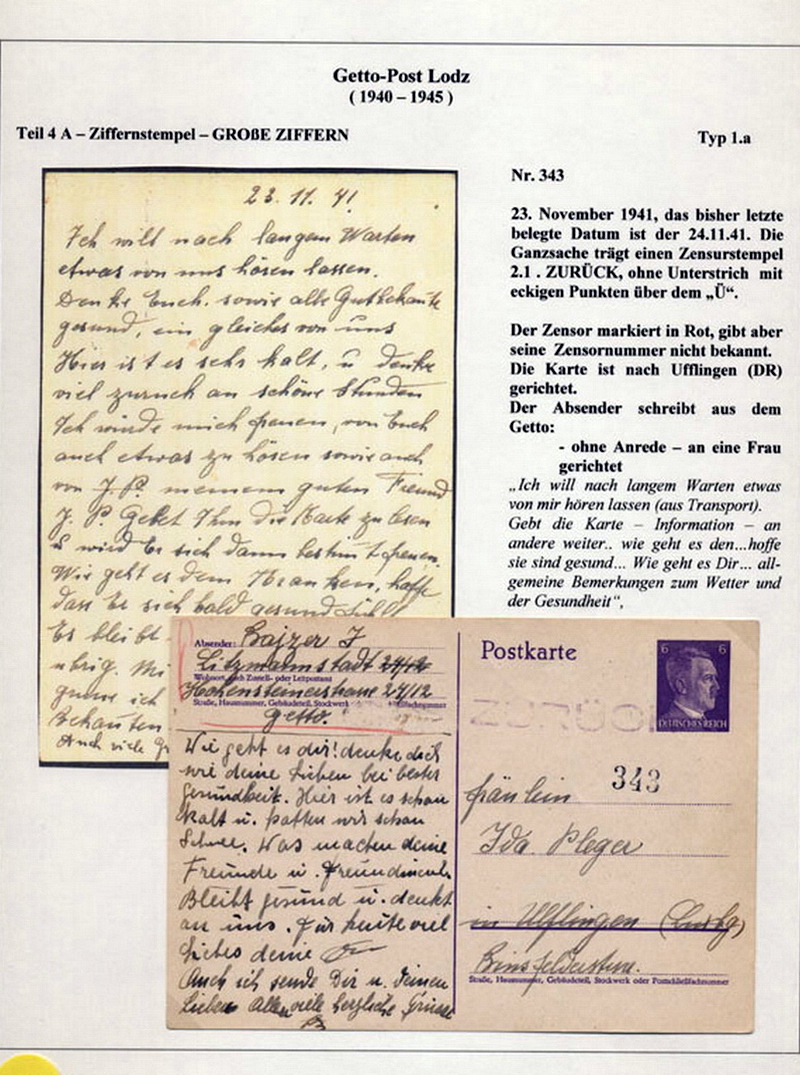 Getto-Post Lodz
( 1940 – 1945 )
Teil 4 A – Ziffernstempel – GROßE ZIFFERN
Typ 1.a
Nr. 343
23. November 1941, das bisher letzte
belegte Datum ist der 24.11.41. Die
Ganzsache trägt einen Zensurstempel
2.1 . ZURÜCK, ohne Unterstrich mit
eckigen Punkten über dem „Ü“.
Der Zensor markiert in Rot, gibt aber
seine Zensornummer nicht bekannt.
Die Karte ist nach Ufflingen (DR)
gerichtet.
Der Absender schreibt aus dem
Getto:
- ohne Anrede – an eine Frau
gerichtet
„Ich will nach langem Warten etwas
von mir hören lassen (aus Transport).
Gebt die Karte – Information – an
andere weiter.. wie geht es den...hoffe
sie sind gesund... Wie geht es Dir... all-
gemeine Bemerkungen zum Wetter und
der Gesundheit“,
23. 11. 41
Ich will nach langem Warten
etwas von uns hören lassen.
Denke Euch, sowie alle Gutbekannte
gesund, ein gleiches von uns
Hier ist es sehr kalt, u denke
viel zurück an schöne Stunden
Ich würde mich freuen, von Euch
auch etwas zu hören sowie auch
von J. P. meinem guten Freund
J. P. Gebet Ihm die Karte zu lesen
u wird Er sich dann bestimt freuen.
Wie geht es dem Kranken, hoffe
dass Er sich bald gesund fühlt
Es bleibt
übrig. Mi
ich
Bekannten
Auch viele Gr
Absender: Bajzer J
Litzmannstadt 24/12
Wohnort, auch Zustell- oder Leitpostamt
Hohensteinerstrasse 24/12
Straße, Hausnummer, Gebäudeteil, Stockwerk
Getto.
Wie geht es dir? denke dich
wie deine Lieben bei bester
Gesundheit. Hier ist es schon
kalt u. hatten wir schon
Schnee. Was machen deine
Freunde u. Freundinnen
Bleibt gesund u. denkt
an uns. Für heute viel
Liebes deine
Auch ich sende Dir u. deinen
Lieben allen viele herzliche Grüsse
Postkarte
6 6
DEUTSCHES REICH
ZURÜCK
343
Fräulein
Ida Pleger
in Ulflingen (Luxbg)
Binsfelderstrw.
Straße, Hausnummer, Gebäudeteil, Stockwerk oder Postschließfachnummer